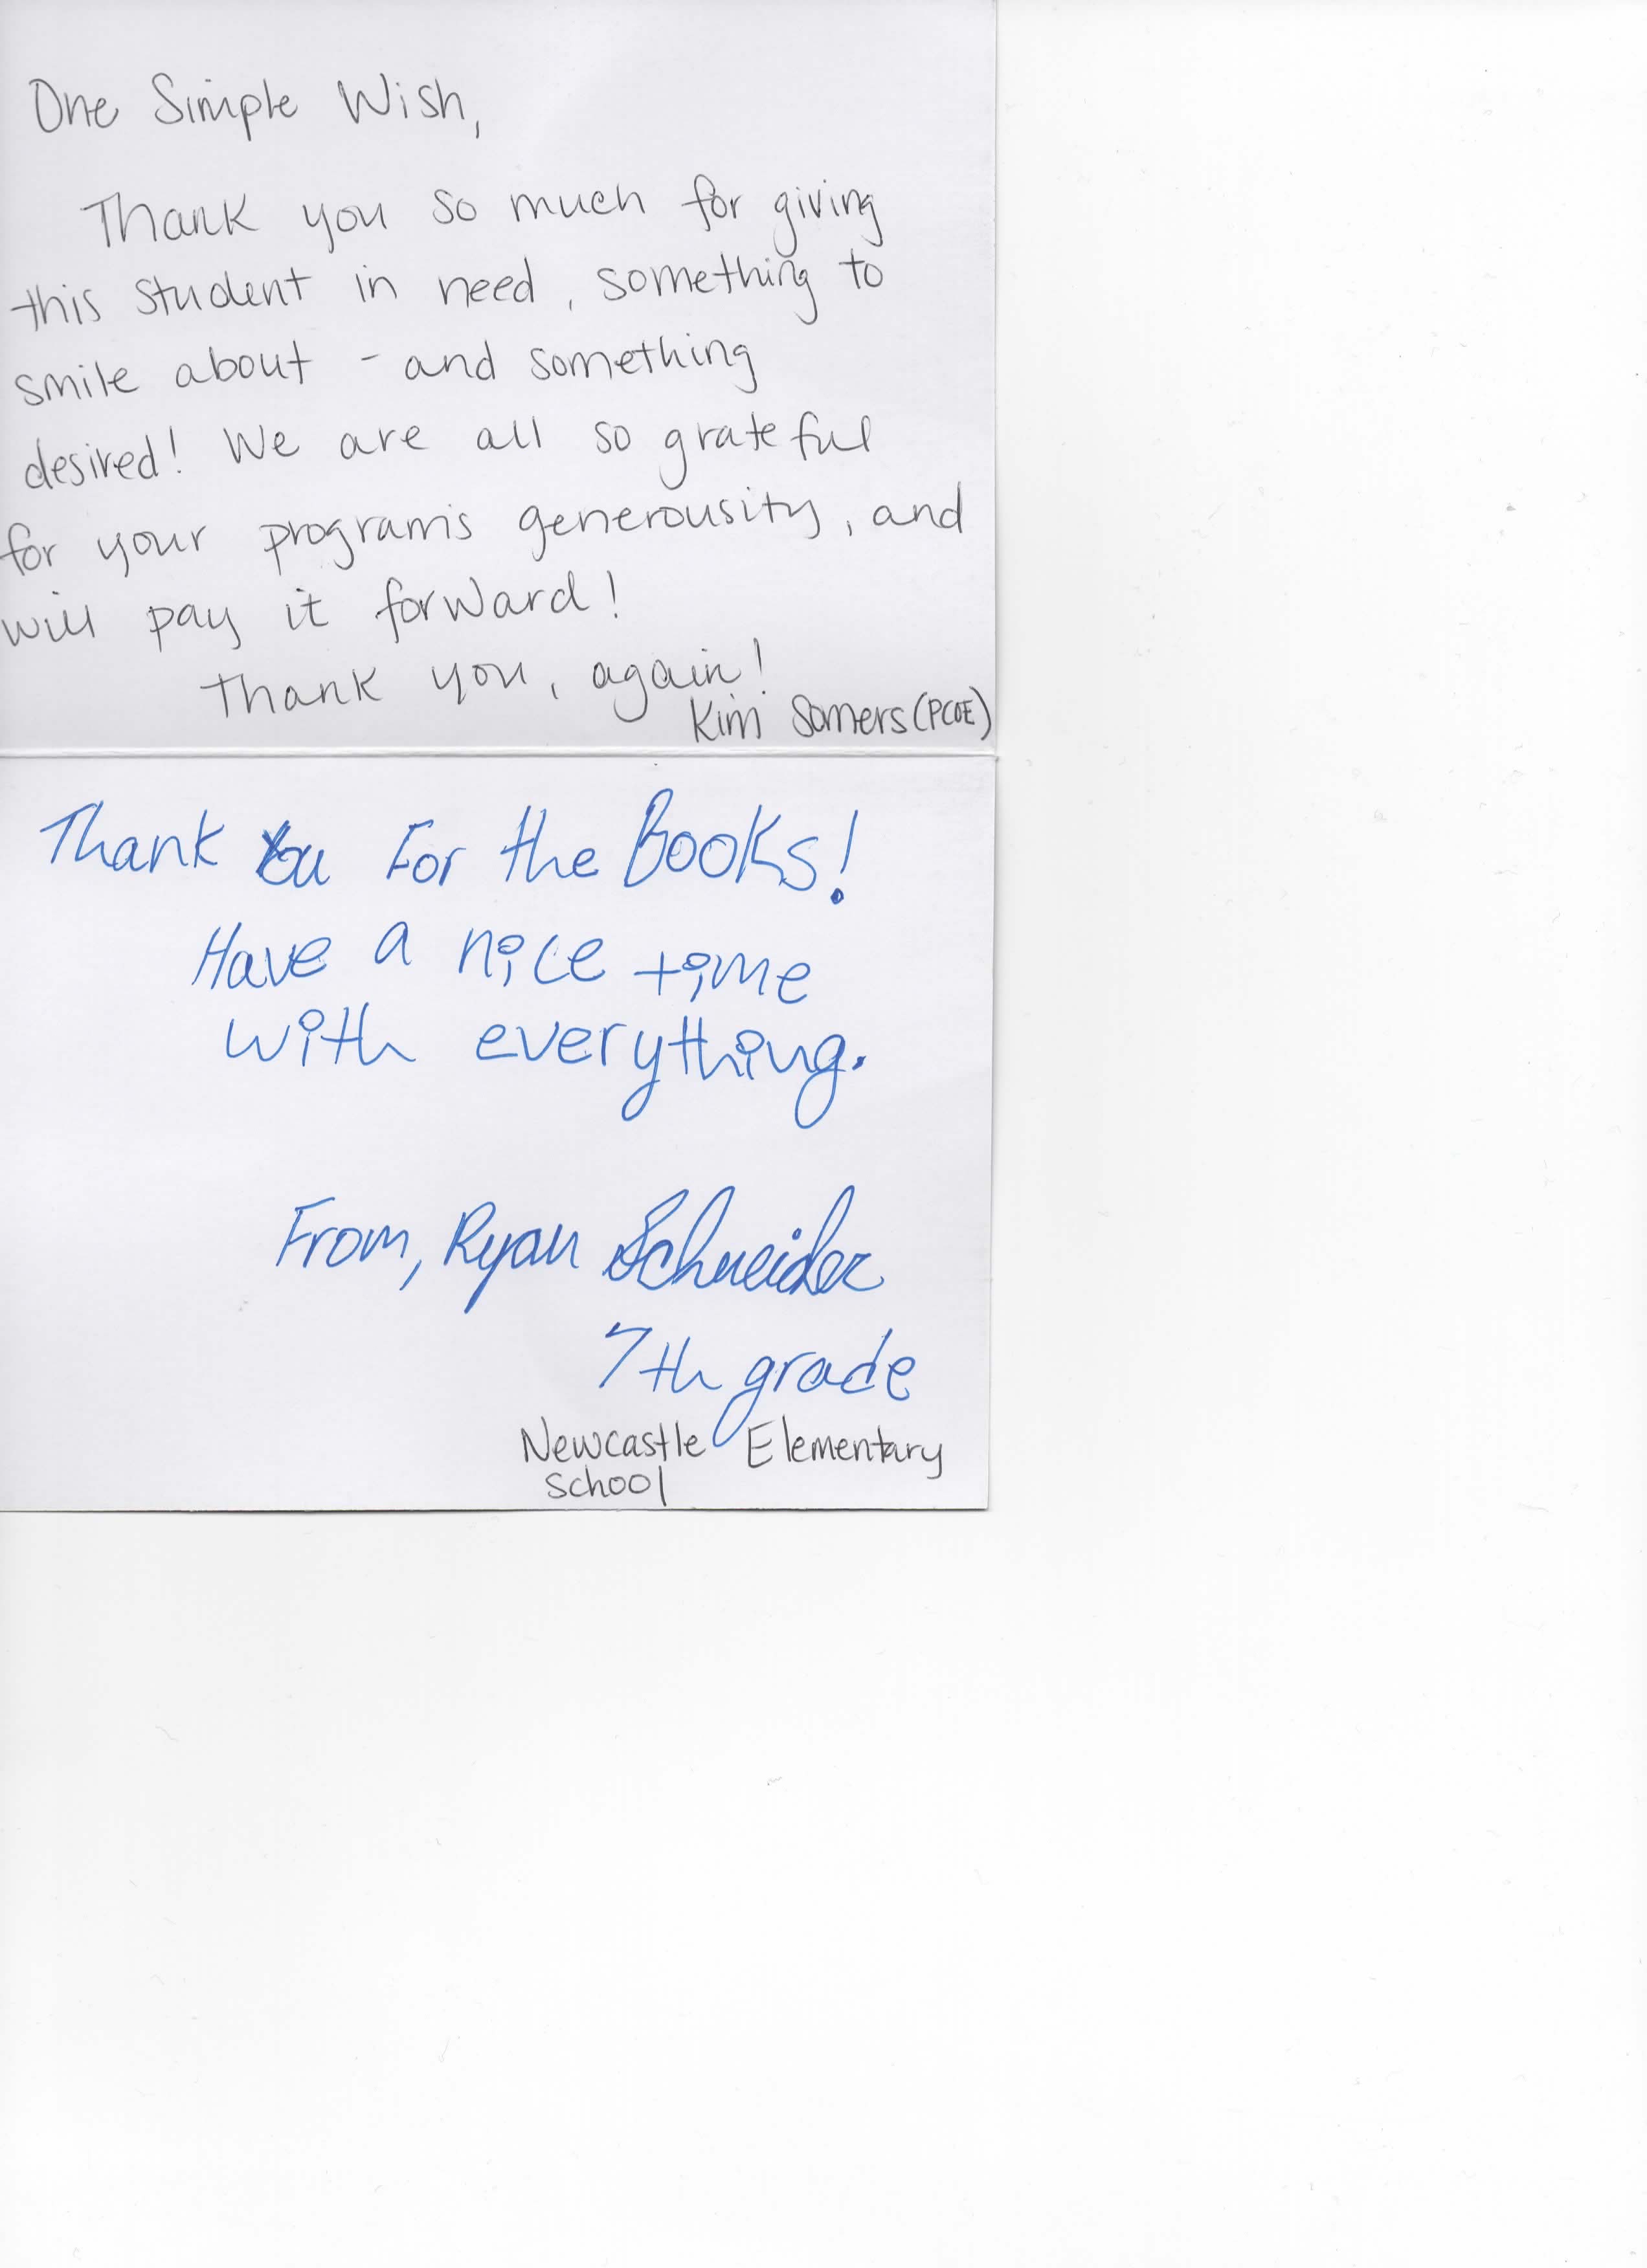 One Simple Wish,
Thank you so much for giving
this student in need, something to
smile about - and something
desired! We are all so grateful
for your program's generousity, and
will pay it forward!
Thank you, again!
Kim Somers (PCOE)
Thank You For the Books!
Have a nice time
with everything.
From, Ryan Schneider
7th grade
Newcastle Elementary
School